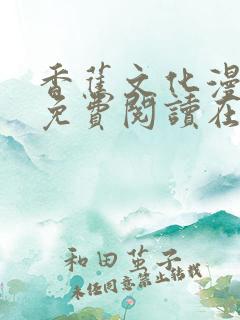 香蕉文化漫
免費閱讀在
和田茧子
未经同意禁止转载